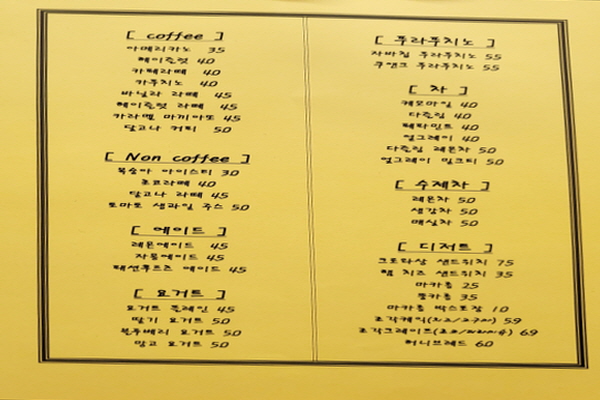 [ coffee ]
아메리카노 3.5
헤이즐럿 4.0
카페라떼 4.0
카푸치노 4.0
바닐라 라떼 4.5
헤이즐럿 라떼 4.5
카라멜 마끼아또 4.5
달고나 커피 5.0
[ Non coffee ]
복숭아 아이스티 3.0
초코라떼 4.0
달고나 라떼 4.5
토마토 생과일 주스 5.0
[ 에이드 ]
레몬에이드 4.5
자몽에이드 4.5
패션후르츠 에이드 4.5
[ 요거트 ]
요거트 플레인 4.5
딸기 요거트 5.0
블루베리 요거트 5.0
망고 요거트 5.0
[ 푸라푸치노 ]
자바칩 푸라푸치노 5.5
쿠앤크 푸라푸치노 5.5
[ 차 ]
캐모마일 4.0
다즐링 4.0
페파민트 4.0
얼그레이 4.0
다즐링 레몬차 5.0
얼그레이 밀크티 5.0
[ 수제차 ]
레몬차 5.0
생강차 5.0
매실차 5.0
[ 디저트 ]
크로와상 샌드위치 7.5
햄 치즈 샌드위치 3.5
마카롱 2.5
뚱카롱 3.5
마카롱 박스포장 1.0
조각케익 5.9
6.9
허니브레드 6.0